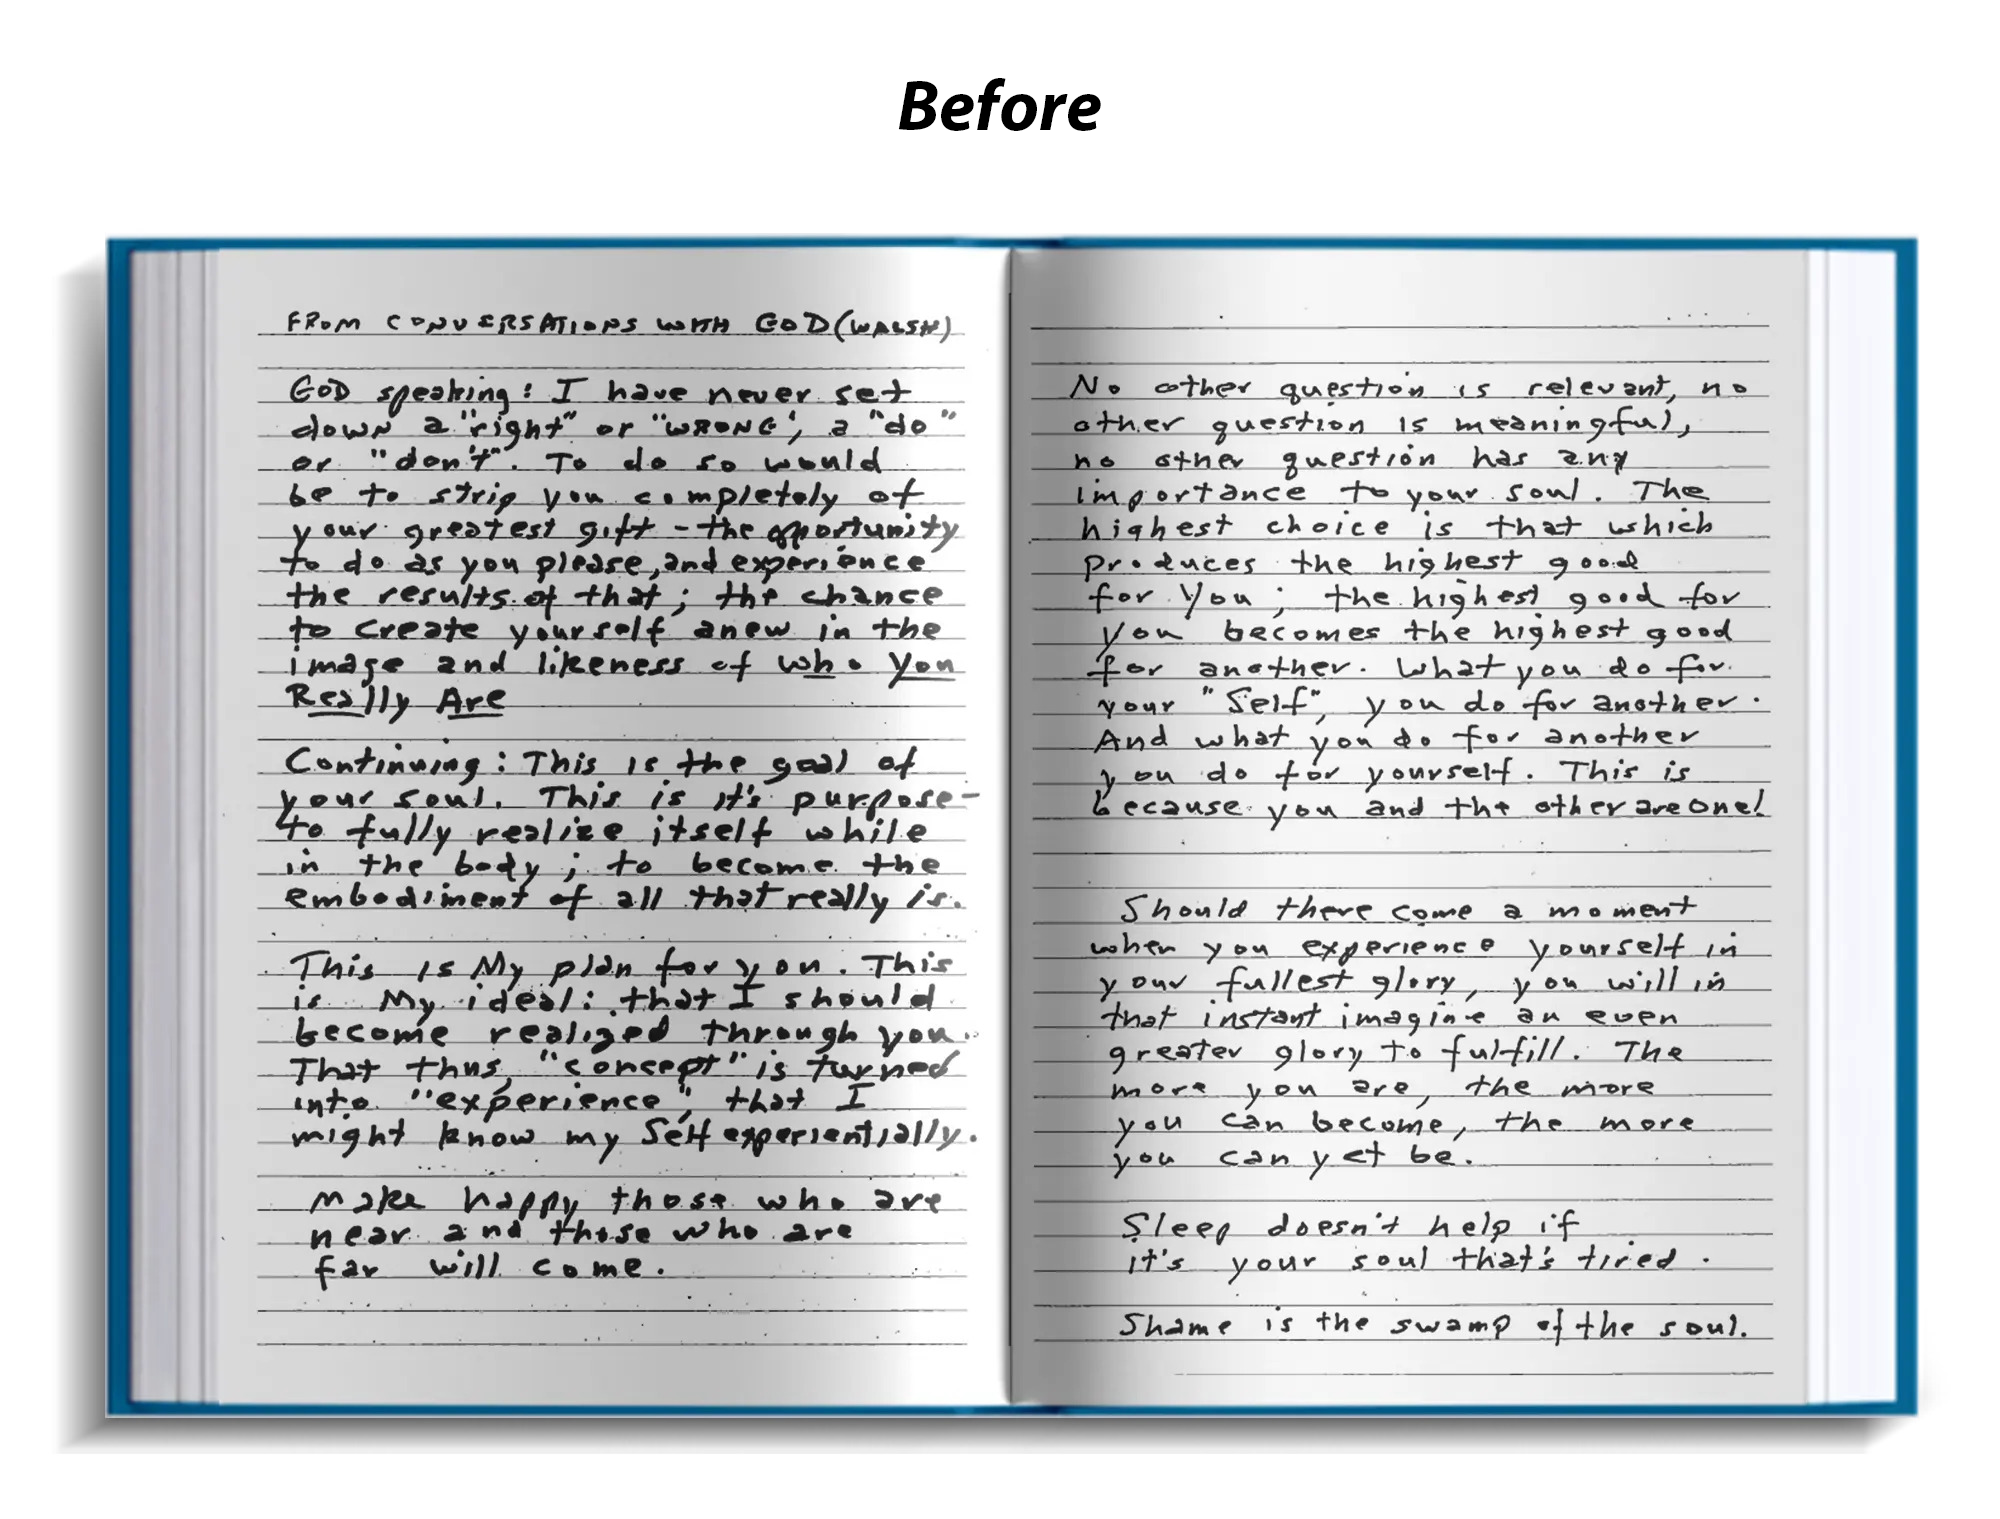 Before
FROM CONVERSATIONS WITH GOD (WALSH)
GOD speaking: I have never set
down a "right" or "WRONG", a "do"
or "don't". To do so would
be to strip you completely of
your greatest gift - the opportunity
to do as you please, and experience
the results of that; the chance
to create yourself anew in the
image and likeness of who you
Really Are
Continuing: This is the goal of
your soul. This is it's purpose-
to fully realize itself while
in the body; to become the
embodiment of all that really is.
This is My plan for you. This
is My ideal: that I should
become realized through you.
That thus, "concept" is turned
into "experience", that I
might know my Self experientially.
Make happy those who are
near and those who are
far will come.
No other question is relevant, no
other question is meaningful,
no other question has any
importance to your soul. The
highest choice is that which
produces the highest good
for You; the highest good for
you becomes the highest good
for another. What you do for
your "Self", you do for another.
And what you do for another
you do for yourself. This is
because you and the other are one!
Should there come a moment
when you experience yourself in
your fullest glory, you will in
that instant imagine an even
greater glory to fulfill. The
more you are, the more
you can become, the more
you can yet be.
Sleep doesn't help if
it's your soul that's tired.
Shame is the swamp of the soul.